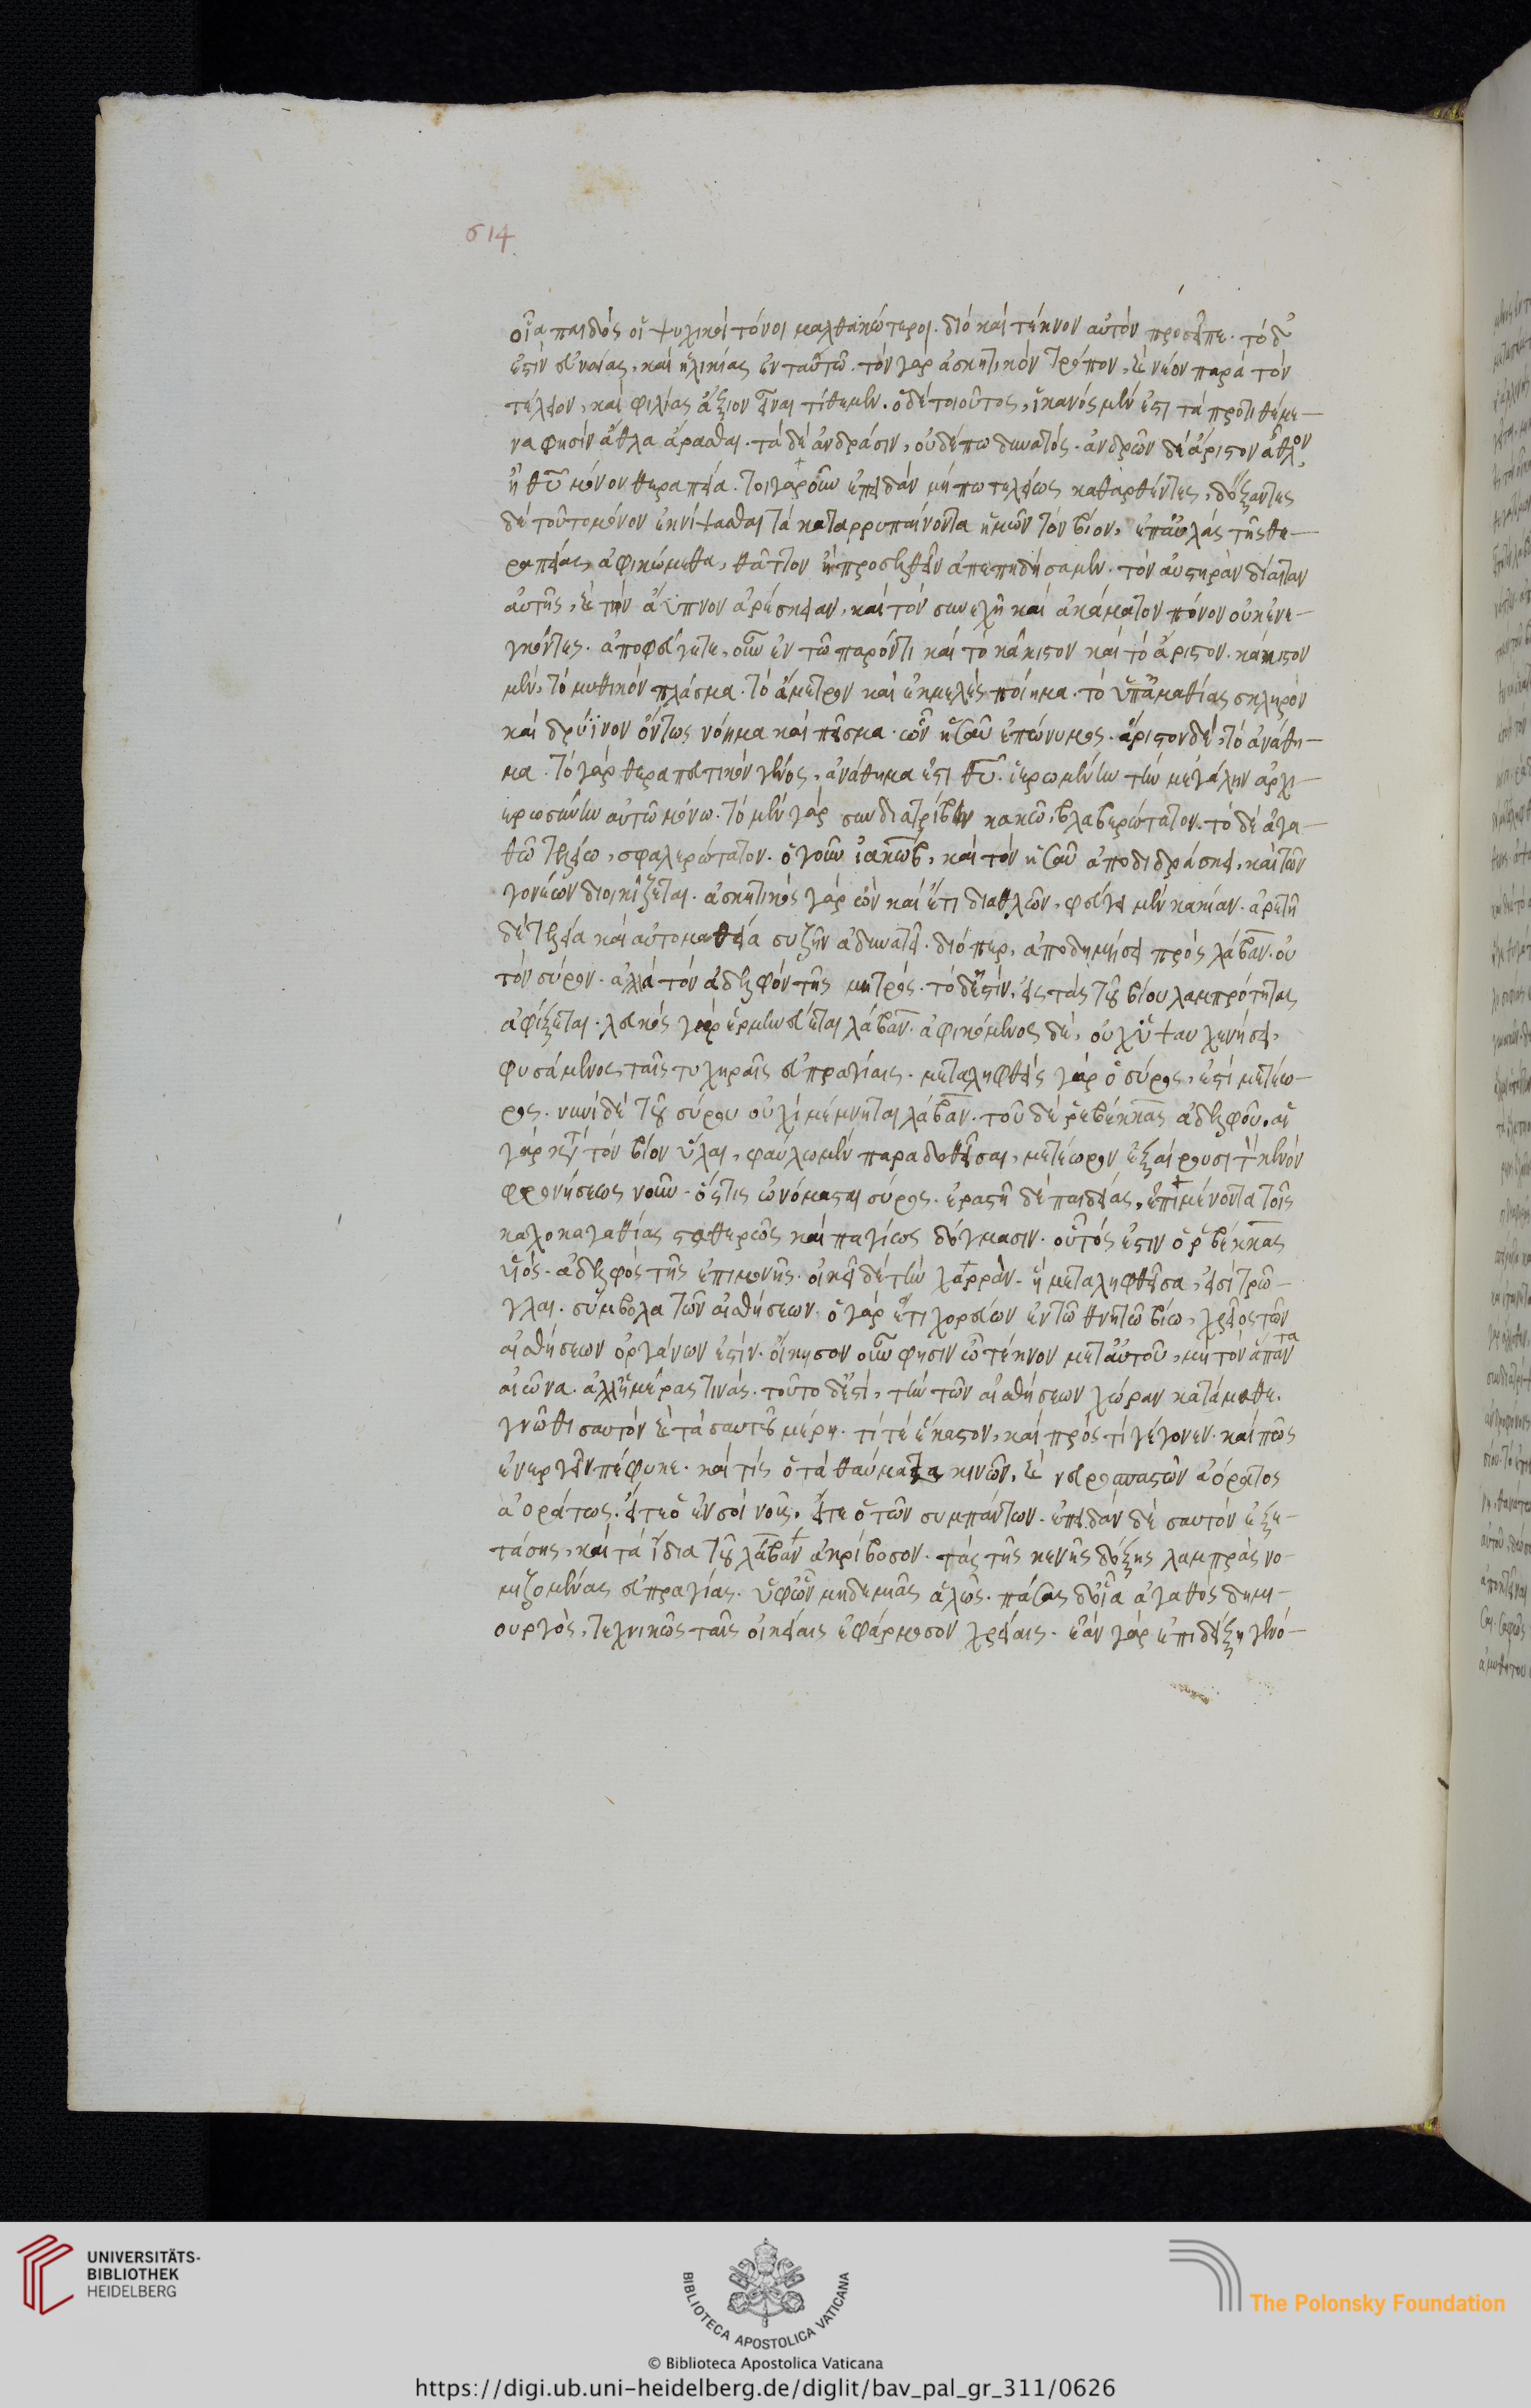 614
οἷα παιδὸς οἱ ψυχικοὶ τόνοι μαλθακώτεροι. διὸ καὶ τέκνον αὐτὸν προσεῖπε. τὸ δ'
ἐστὶν εὐνοίας, καὶ ἡλικίας ἐν ταὐτῶ. τὸν γὰρ ἀσκητικὸν τρόπον, καὶ νέον παρὰ τὸν
τέλειον, καὶ φιλίας ἄξιον εἶναι τίθεμεν. ὁ δὲ τοιοῦτος, ἱκανὸς μέν ἐστι τὰ προτιθέμε-
να φησὶν ἆθλα ἄρασθαι. τὰ δὲ ἀνδράσιν, οὐδέπω δυνατός. ἀνδρῶν δὲ ἄριστον ἆθλον,
ἡ θῦ μόνον θεραπεία. τοιγαροῦν ἐπειδὰν μήπω τελείως καθαρθέντες, δόξαντες
δὲ τοῦτο μόνον ἐκνίψασθαι τὰ καταρρυπαίνοντα ἡμῶν τὸν βίον, ἐπ' αὐλὰς τῆς θε-
ραπείας, ἀφικώμεθα, θᾶττον ἢ προσελθεῖν ἀπεπηδήσαμεν. τὸν αὐστηρὰν δίαιταν
αὐτῆς, καὶ τὴν ἄϋπνον ἀρέσκειαν, καὶ τὸν συνεχῆ καὶ ἀκάματον πόνον οὐκ ἐνε-
γκόντες. ἀποφεύγετε, οὖν ἐν τῶ παρόντι καὶ τὸ κάκιστον καὶ τὸ ἄριστον. κάκιστον
μὲν, τὸ μυθικὸν πλάσμα. τὸ ἄμετρον καὶ ἐκμελὲς ποίημα. τὸ ὑπ' ἀμαθίας σκληρὸν
καὶ δρύϊνον ὄντως νόημα καὶ πεῖσμα. ὧν ἡσαῦ ἐπώνυμος. ἄριστον δὲ, τὸ ἀνάθη-
μα. τὸ γὰρ θεραπευτικὸν γένος, ἀνάθημά ἐστι θῦ. ἱερωμένων τὴν μεγάλην ἀρχι-
ερωσύνην αὐτῶ μόνω. τὸ μὲν γὰρ συνδιατρίβειν κακῶ, βλαβερώτατον. τὸ δὲ ἀγα-
θῶ τελείω, σφαλερώτατον. ὁ γοῦν ἰακὼβ, καὶ τὸν ἡσαῦ ἀποδιδράσκει, καὶ τῶν
γονέων διοικίζεται. ἀσκητικὸς γὰρ ὢν καὶ ἔτι διαθλῶν, φεύγει μὲν κακίαν. ἀρετῆ
δὲ τελεία καὶ αὐτομαθεῖα συζῆν ἀδυνατεῖ. διόπερ, ἀποδημήσει πρὸς λάβαν. οὐ
τὸν σύρον. ἀλλὰ τὸν ἀδελφὸν τῆς μητρός. τὸ δ' ἐστὶν, εἰς τὰς τοῦ βίου λαμπρότητας
ἀφίξεται. λευκὸς γὰρ ἑρμηνεύεται λάβαν. ἀφικόμενος δὲ, οὐχ ὑψαυχενήσει,
φυσάμενος ταῖς τυχηραῖς εὐπραγίαις. μεταληφθεὶς γὰρ ὁ σύρος, ἐστὶ μετέω-
ρος. νυνὶ δὲ τοῦ σύρου οὐχὶ μέμνηται λάβαν. τοῦ δὲ ῥεβέκκας ἀδελφοῦ. αἱ
γὰρ κατὰ τὸν βίον ὗλαι, φαύλω μὲν παραδοθεῖσαι, μετέωρον ἐξαίρουσι τὸν κενὸν
φρονήσεως νοῦν. ὅστις ὠνόμασται σύρος. ἐραστῆ δὲ παιδείας, ἐπιμένοντα τοῖς
καλοκαγαθίας σταθερῶς καὶ παγίως δόγμασιν. οὗτός ἐστιν ὁ ῥεβέκκας
υἱός. ἀδελφὸς τῆς ἐπιμονῆς. οἰκεῖ δὲ τὴν χαρράν. ἡ μεταληφθεῖσα, εἰσὶ τρῶ-
γλαι. σύμβολα τῶν αἰσθήσεων. ὁ γὰρ ἔτι χορεύων ἐν τῶ θνητῶ βίω, χρεῖος τῶν
αἰσθήσεων ὀργάνων ἐστίν. οἴκησον οὖν φησὶν ὦ τέκνον μετ' αὐτοῦ, μὴ τὸν ἅπαντα
αἰῶνα. ἀλλ' ἡμέρας τινάς. τοῦτο δ' ἐστὶ, τὴν τῶν αἰσθήσεων χώραν κατάμαθε.
γνῶθι σαυτὸν καὶ τὰ σαυτοῦ μέρη. τί τὲ ἕκαστον, καὶ πρὸς τί γέγονεν. καὶ πῶς
ἐνεργεῖν πέφυκε. καὶ τίς ὁ τὰ θαύματα κινῶν, καὶ νευροσπαστῶν ἀόρατος
ἀοράτως. εἴτε ὁ ἐν σοὶ νοῦς, εἴτε ὁ τῶν συμπάντων. ἐπειδὰν δὲ σαυτὸν ἐξε-
τάσης, καὶ τὰ ἴδια τοῦ λάβαν ἀκρίβωσον. τὰς τῆς κενῆς δόξης λαμπρὰς νο-
μιζομένας εὐπραγίας. ὑφ' ὧν μηδεμιᾶς ἁλῶς. πάσας δ' οἷα ἀγαθὸς δημι-
ουργὸς, τεχνικῶς ταῖς οἰκείαις ἐφάρμοσον χρείαις. ἐὰν γὰρ ἐπιδείξη γενό-
UNIVERSITÄTS-
BIBLIOTHEK
HEIDELBERG
BIBLIOTECA APOSTOLICA VATICANA
The Polonsky Foundation
© Biblioteca Apostolica Vaticana
https://digi.ub.uni-heidelberg.de/diglit/bav_pal_gr_311/0626